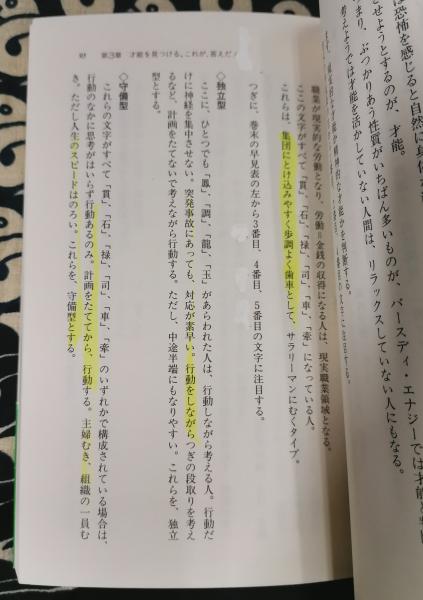 は恐怖を感じると自然に身体
させようとするのが、才能。
まり、ぶつかりあう性質がいちばん多いものが、バースディ・エナジーでは才能と
考えようでは才能を活かしていない人間は、リラックスしていない人にもなる。
現実的な才能か精神的な才能かを判断する。
番目の文字に注目する。
第3章 才能を見つける。これが、答えだ
職業が現実的な労働となり、労働=金銭の収得になる人は、現実職業領域となる。
ここの文字がすべて「貫」、「石」、「禄」、「司」、「車」、「牽」になっている人。
これらは、集団にとけ込みやすく歩調よく歯車として、サラリーマンにむくタイプ。
つぎに、巻末の早見表の左から3番目、4番目、5番目の文字に注目する。
◇独立型
ここに、ひとつでも「鳳」、「調」、「龍」、「玉」があらわれた人は、行動しながら考える人。行動だ
けに神経を集中させない。突発事故にあっても、対応が素早い。行動をしながらつぎの段取りを考え
るなど、計画をたてないで考えながら行動する。ただし、中途半端にもなりやすい。これらを、独立
型とする。
◇守備型
これらの文字がすべて「貫」、「石」、「禄」、「司」、「車」、「牽」のいずれかで構成されている場合は、
行動のなかに思考がはいらず行動あるのみ。計画をたててから、行動する。主婦むき、組織の一員む
き。ただし人生のスピードはのろい。これらを、守備型とする。